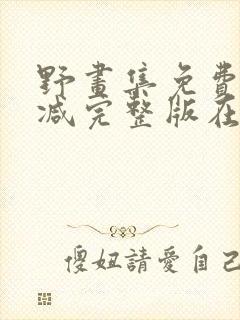 野畫集免費
减完整版在
傻妞請愛自己